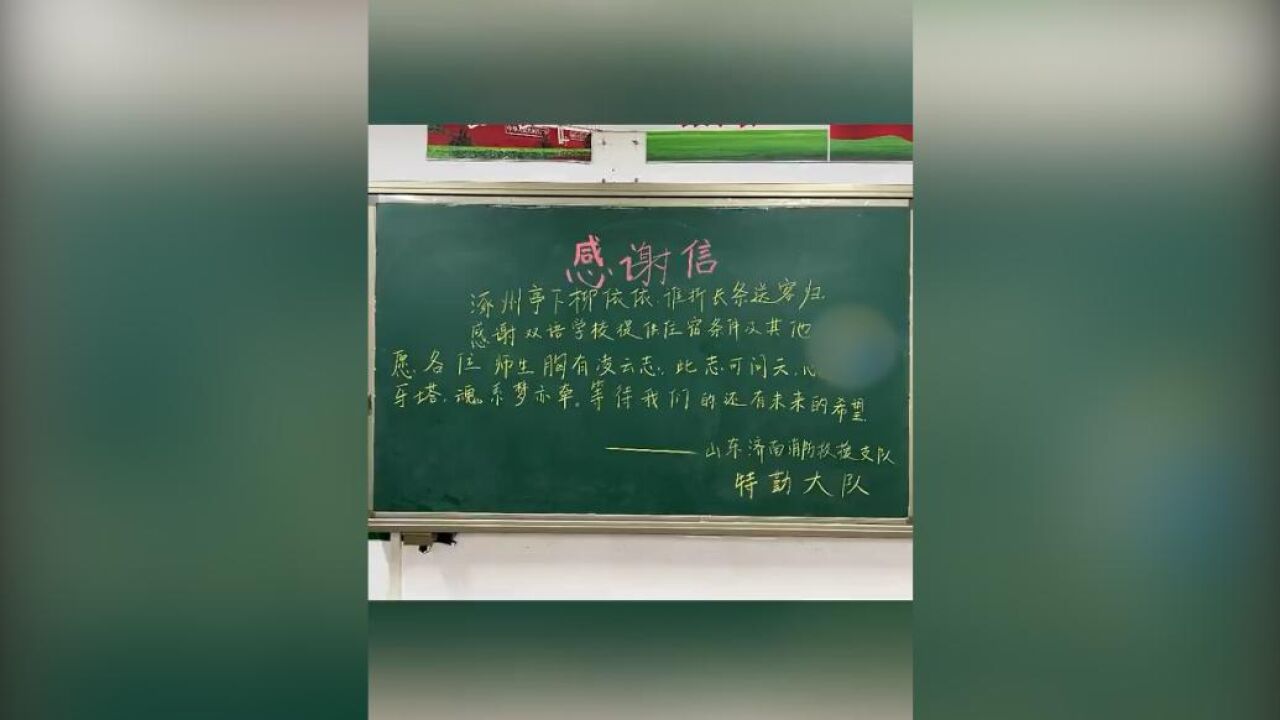 感谢信
涿州亭下柳依依,谁折长条送客归
感谢双语学校提供住宿条件及其他
愿各位师生胸有凌云志,此志可问天,心
牙塔,魂系梦亦牵。等待我们的还有未来的希望
——山东济南消防救援支队
特勤大队